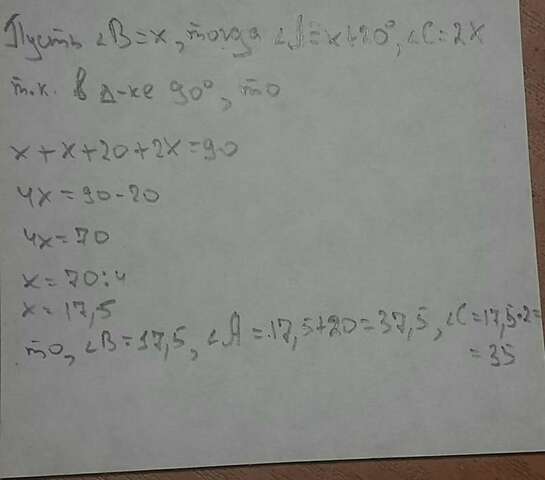 Пусть ∠B = x, тогда ∠A = x+20°, ∠C = 2x
т.к. в Δ-ке 90°, то
x + x + 20 + 2x = 90
4x = 90 - 20
4x = 70
x = 70 : 4
x = 17,5
то, ∠B = 17,5, ∠A = 17,5 + 20 = 37,5, ∠C = 17,5 · 2 =
= 35